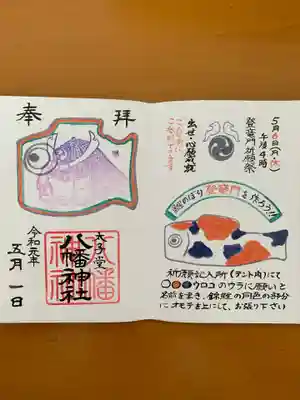 奉拝
太子堂
八幡神社
令和元年
五月一日
5月6日(月・休)
午後4時
登竜門祈願祭
出世・心願成就
鯉のぼり登竜門を作ろう!!
祈願記入所(テント内)にて
ウロコのウラに願いと
名前を書き、錦鯉の同色の部分
にオモテを上にして、お張り下さい